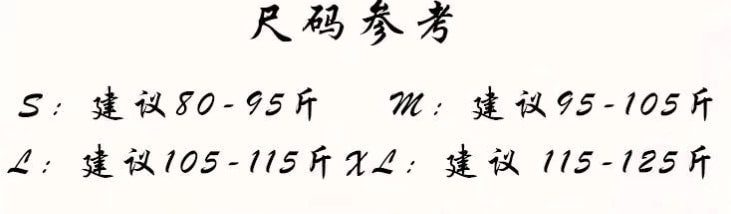 尺码参考
S：建议80-95斤 M：建议95-105斤
L：建议105-115斤 XL：建议 115-125斤